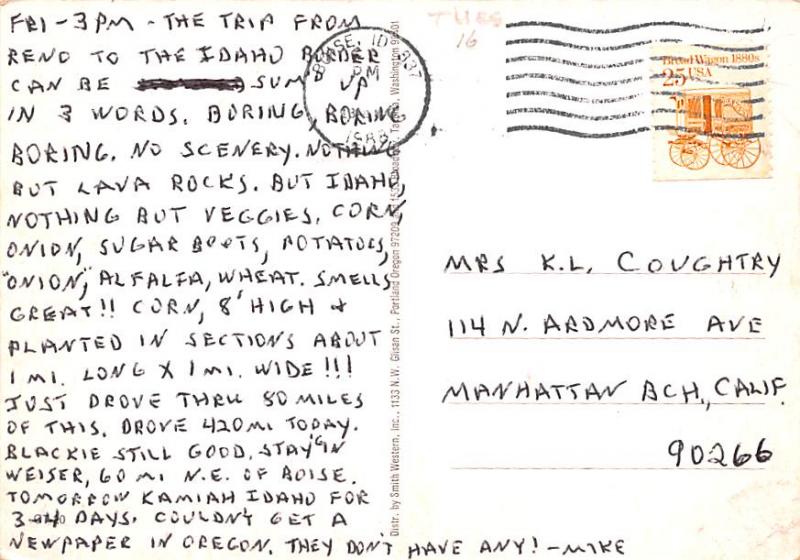 FRI - 3PM - THE TRIP FROM
RENO TO THE IDAHO BORDER
CAN BE SUM UP
IN 3 WORDS. BORING, BORING
BORING. NO SCENERY. NOTHING
BUT LAVA ROCKS. BUT IDAHO,
NOTHING BUT VEGGIES, CORN,
ONION, SUGAR BEETS, POTATOES,
"ONION," ALFALFA, WHEAT. SMELLS
GREAT!! CORN, 8' HIGH &
PLANTED IN SECTIONS ABOUT
1 MI. LONG X 1 MI. WIDE!!!
JUST DROVE THRU 80 MILES
OF THIS. DROVE 420 MI TODAY.
BLACKIE STILL GOOD. STAY'G IN
WEISER, 60 MI N.E. OF BOISE.
TOMORROW KAMIAH IDAHO FOR
DAYS. COULDN'T GET A
NEWPAPER IN OREGON. THEY DON'T HAVE ANY! - MIKE
Distr. by Smith Western, Inc., 1133 N.W. Glisan St., Portland Oregon 97209 Washington
TUES
16
BOISE, ID 837
PM
1988
Bread Wagon 1880s
25 USA
MRS K.L. COUGHTRY
114 N. ARDMORE AVE
MANHATTAN BCH., CALIF.
90266